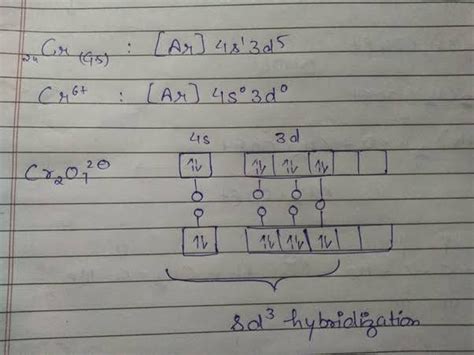 24Cr (GS) : [Ar] 4s¹3d⁵
Cr⁶⁺ : [Ar] 4s⁰3d⁰
4s 3d
Cr₂O₇²⊖ ⥮ ⥮ ⥮ ⥮
⥮ ⥮ ⥮ ⥮
sd³ hybridization